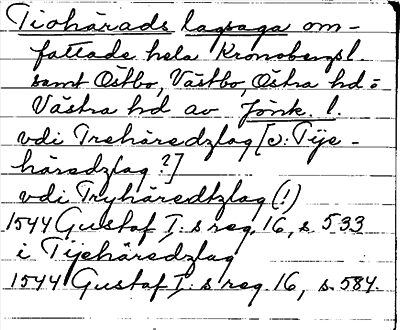 Tiohärads lagsaga om-
fattade hela Kronobergs l.
samt Östbo, Västbo, Östra hd o
Västra hd av Jönk. l.
vdi Trehäredzlag [ɔ: Tije-
häredzlag?]
vdi Tryhäredtzlag (!)
1544 Gustaf I:s reg. 16, s. 533
i Tijehäredzlag
1544 Gustaf I:s reg. 16, s. 584.